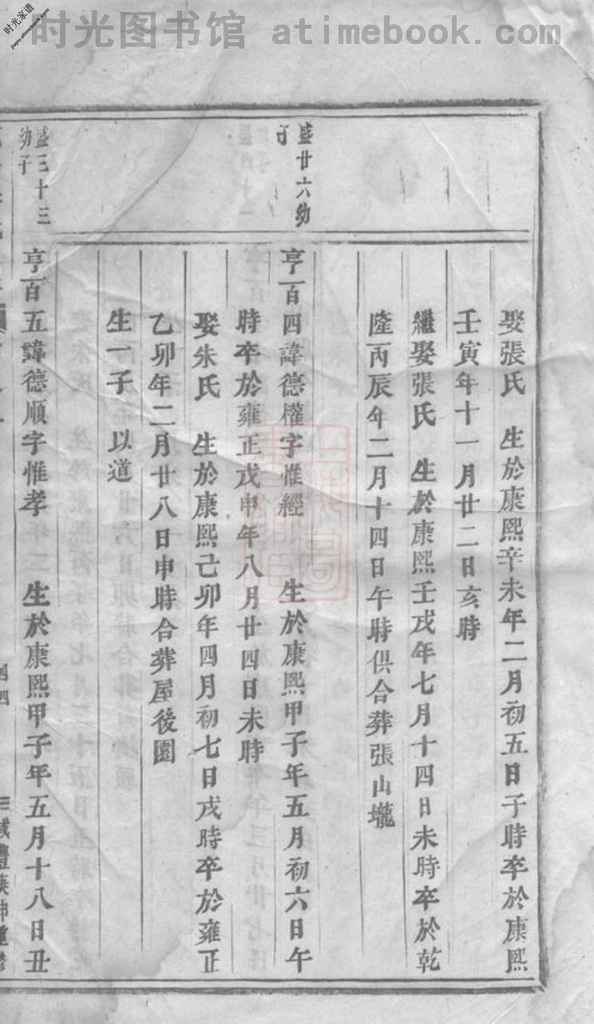 时光家谱
时光图书馆 atimebook.com
娶張氏 生於康熙辛未年二月初五日子時卒於康熙
壬寅年十一月廿二日亥時
繼娶張氏 生於康熙壬戌年七月十四日未時卒於乾
隆丙辰年二月十四日午時俱合葬張山壠
盛廿六幼
子
亨百四諱德權字惟經 生於康熙甲子年五月初六日午
時卒於雍正戊申年八月廿四日未時
娶朱氏 生於康熙己卯年四月初七日戌時卒於雍正
乙卯年二月廿八日申時合葬屋後園
生一子 以道
盛三十三
幼子
亨百五諱德順字惟孝 生於康熙甲子年五月十八日丑